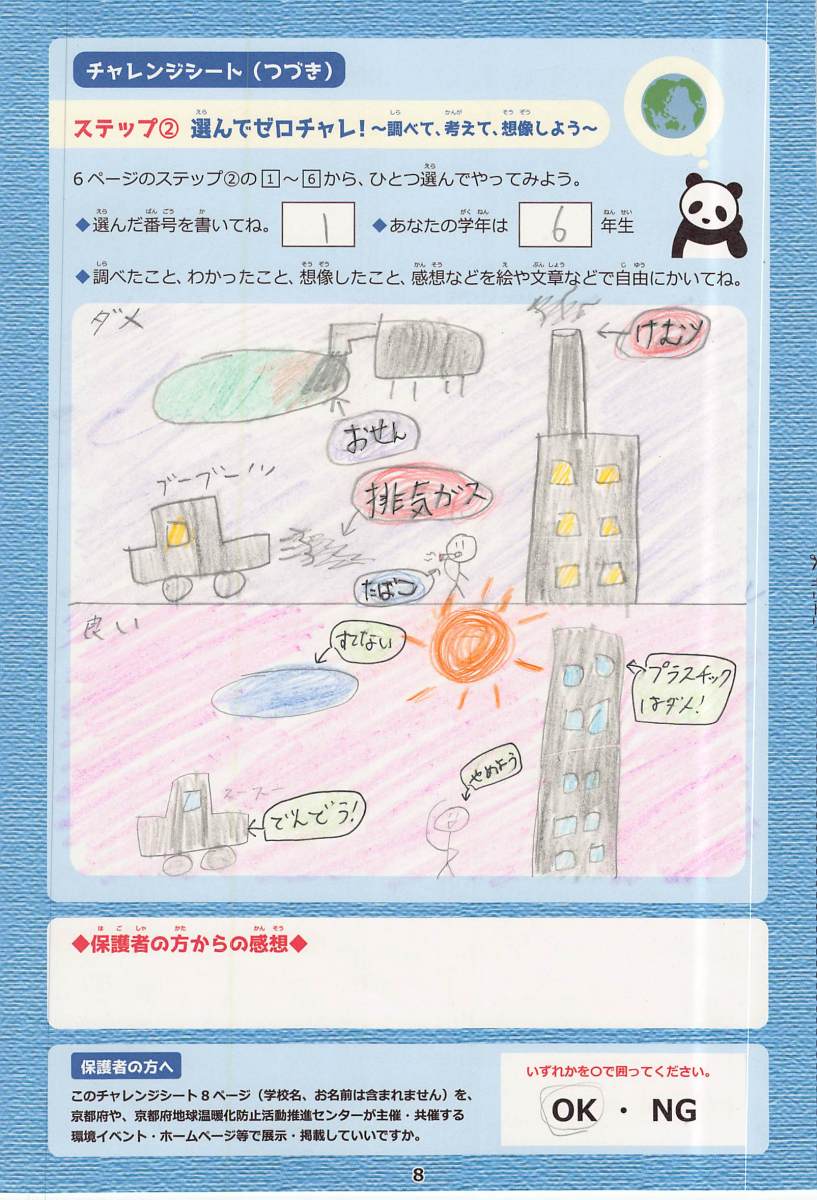 チャレンジシート（つづき）
ステップ② 選んでゼロチャレ！〜調べて、考えて、想像しよう〜
6ページのステップ②の1〜6から、ひとつ選んでやってみよう。
◆選んだ番号を書いてね。 1 ◆あなたの学年は 6 年生
◆調べたこと、わかったこと、想像したこと、感想などを絵や文章などで自由にかいてね。
ダメ
けむり
おせん
ブーブー
排気ガス
たばこ
良い
すてない
プラスチック
はダメ！
やめよう
スースー
でんどう！
◆保護者の方からの感想◆
保護者の方へ
このチャレンジシート8ページ（学校名、お名前は含まれません）を、
京都府や、京都府地球温暖化防止活動推進センターが主催・共催する
環境イベント・ホームページ等で展示・掲載していいですか。
いずれかを○で囲ってください。
OK ・ NG
8